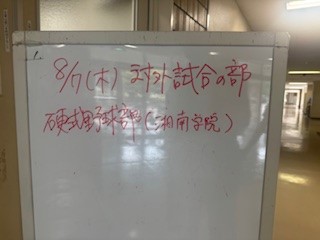 8/7(木) 対外試合の部
硬式野球部(湘南学院)